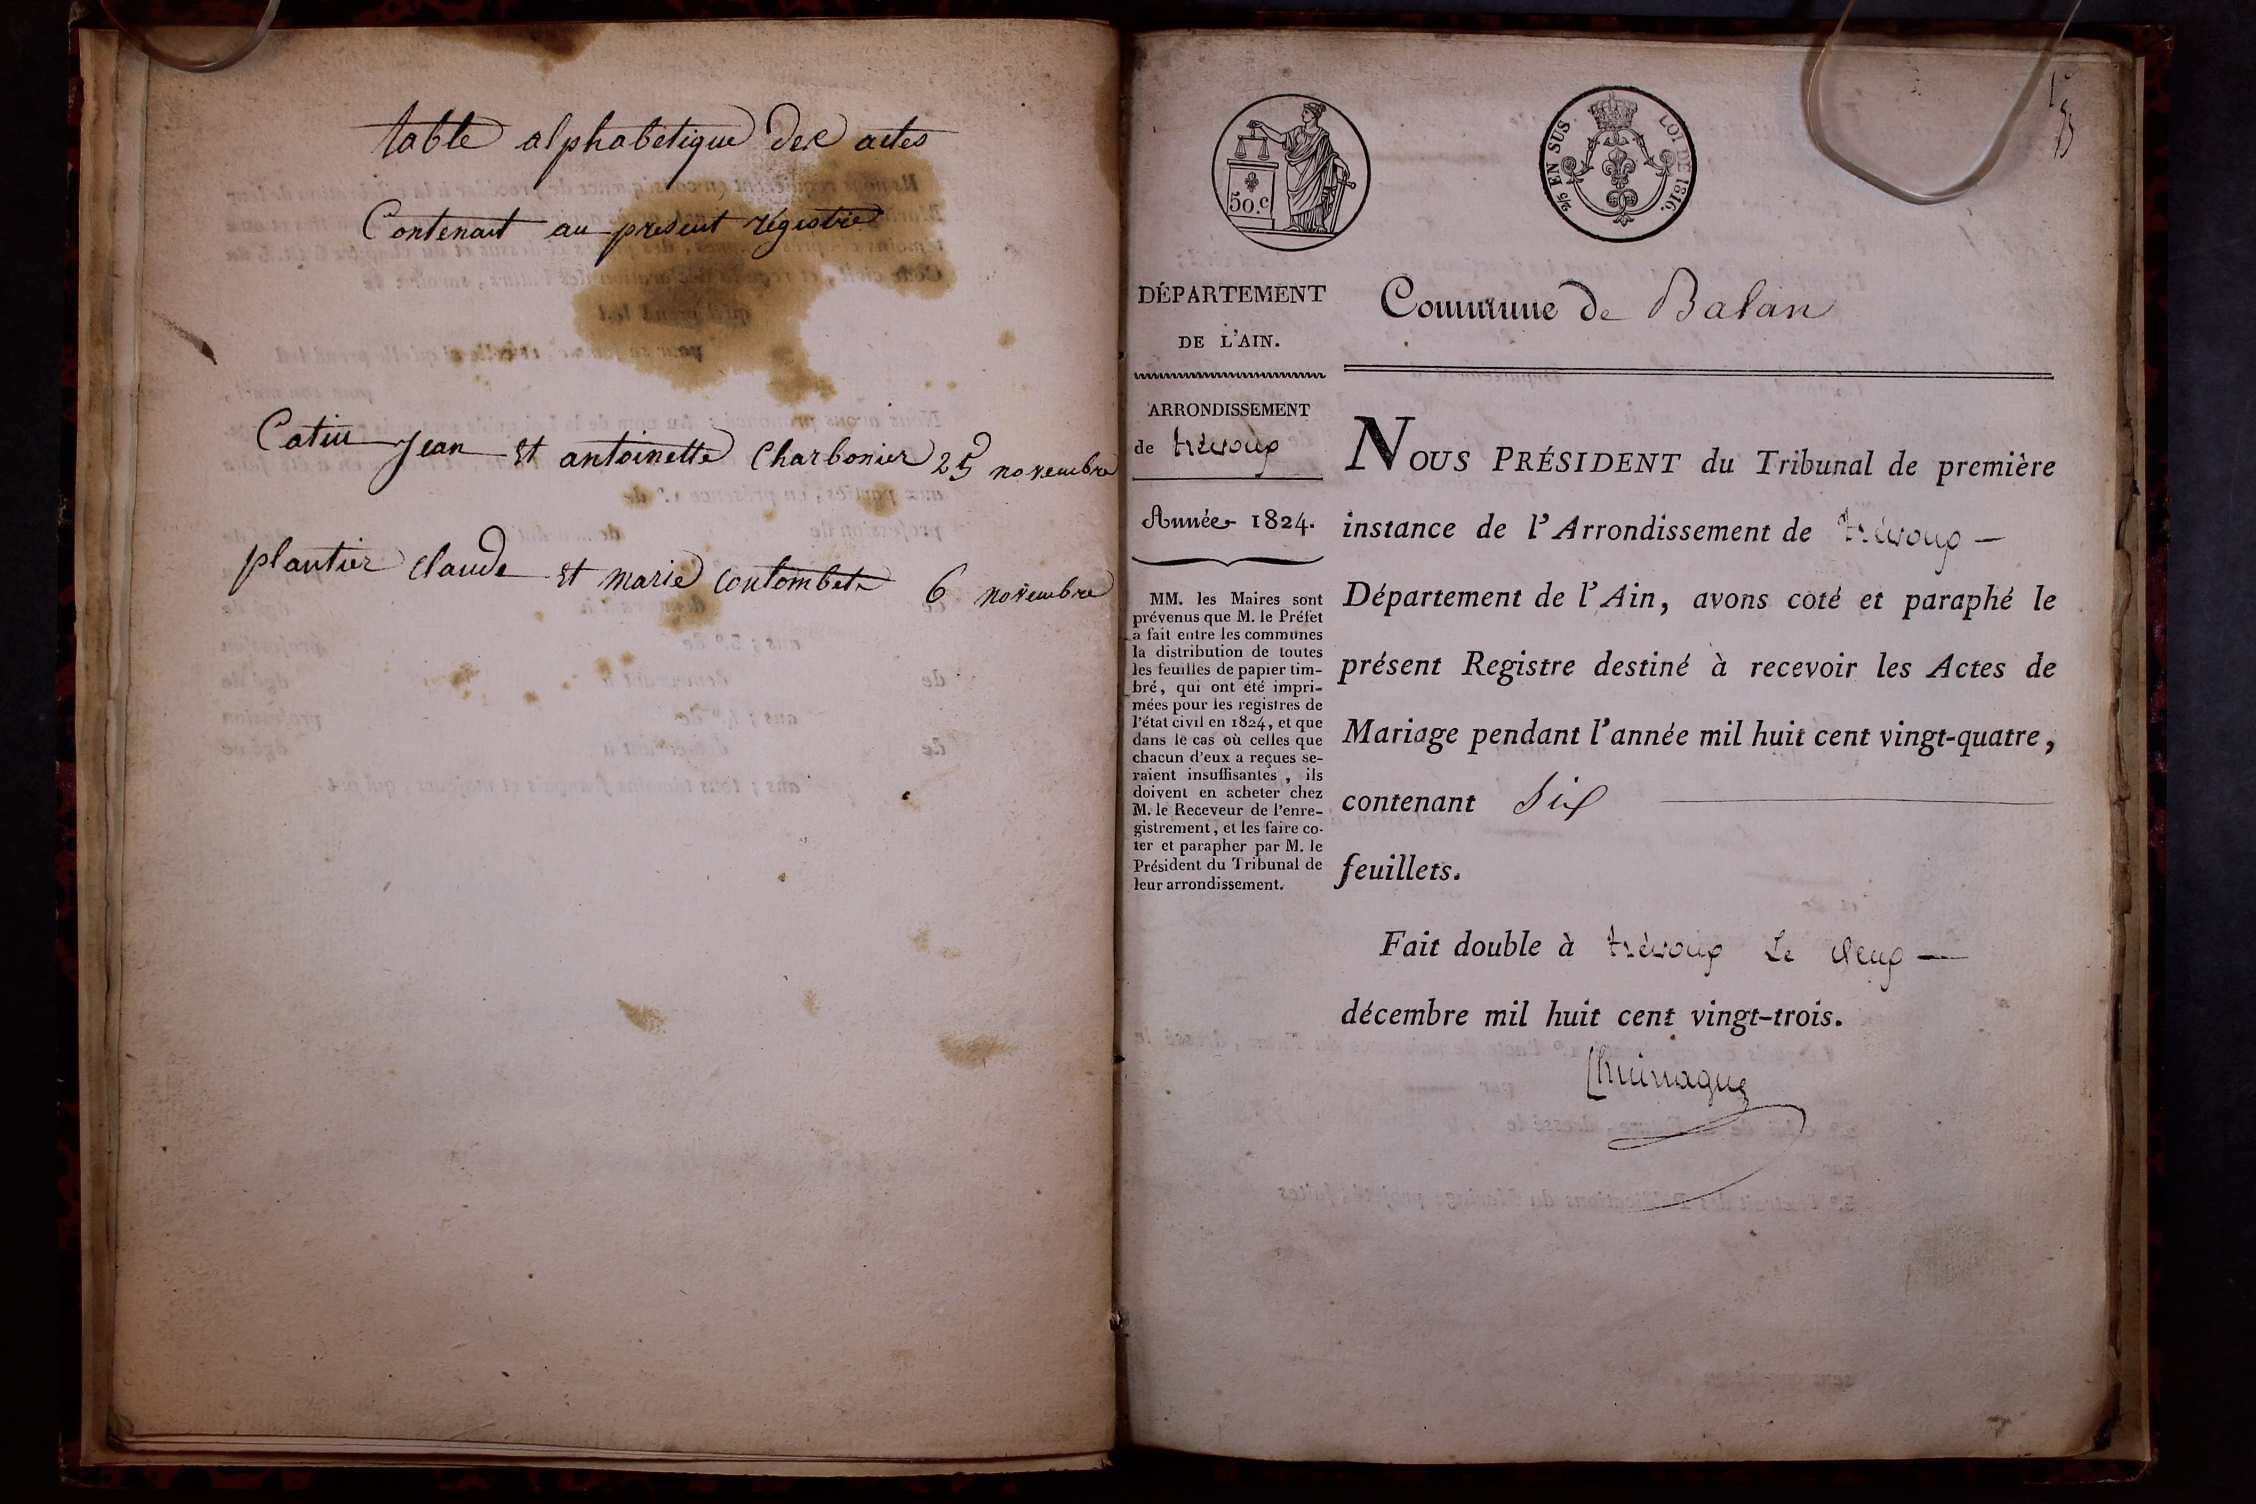 table alphabetique des actes
Contenant au present régistre
Catin Jean et antoinette Charbonier 25 novembre
plantier claude et marie coulombet 6 novembre
50.c
25 EN SUS. LOI DE 1816.
DÉPARTEMENT
DE L'AIN.
ARRONDISSEMENT
de trévoux
Année 1824.
MM. les Maires sont
prévenus que M. le Préfet
a fait entre les communes
la distribution de toutes
les feuilles de papier tim-
bré, qui ont été impri-
mées pour les registres de
l'état civil en 1824, et que
dans le cas où celles que
chacun d'eux a reçues se-
raient insuffisantes, ils
doivent en acheter chez
M. le Receveur de l'enre-
gistrement, et les faire co-
ter et parapher par M. le
Président du Tribunal de
leur arrondissement.
Commune de Balan
NOUS PRÉSIDENT du Tribunal de première
instance de l'Arrondissement de trévoux —
Département de l'Ain, avons coté et paraphé le
présent Registre destiné à recevoir les Actes de
Mariage pendant l'année mil huit cent vingt-quatre,
contenant Six
feuillets.
Fait double à trévoux Le deux —
décembre mil huit cent vingt-trois.